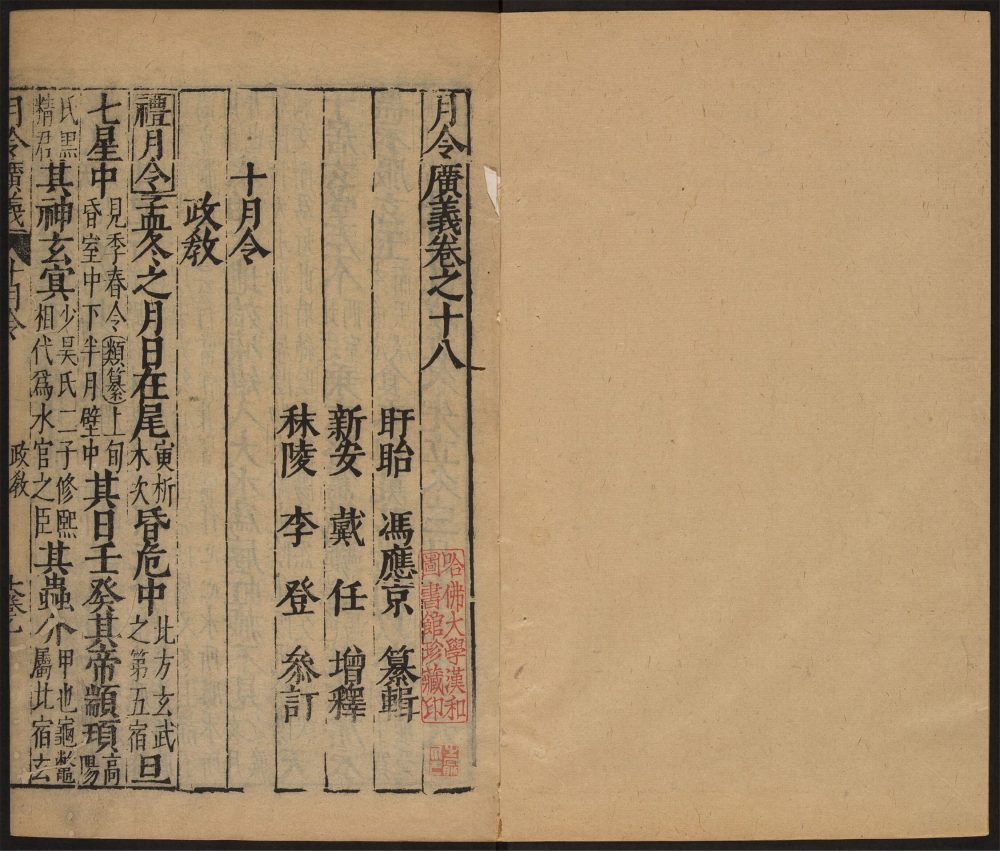 月令廣義卷之十八
盱眙 馮應京 纂輯
新安 戴任 增釋
秣陵 李登 參訂
十月令
政教
禮月令孟冬之月日在尾寅析木次昏危中北方玄武之第五宿旦
七星中見季春令類纂上旬昏室中下半月壁中其日壬癸其帝顓頊高陽
氏黑精君其神玄冥少昊氏二子修熙相代為水官之臣其蟲介甲也龜鱉屬此宿玄
月令廣義 十月令 政教
哈佛大學漢和
圖書館珍藏印